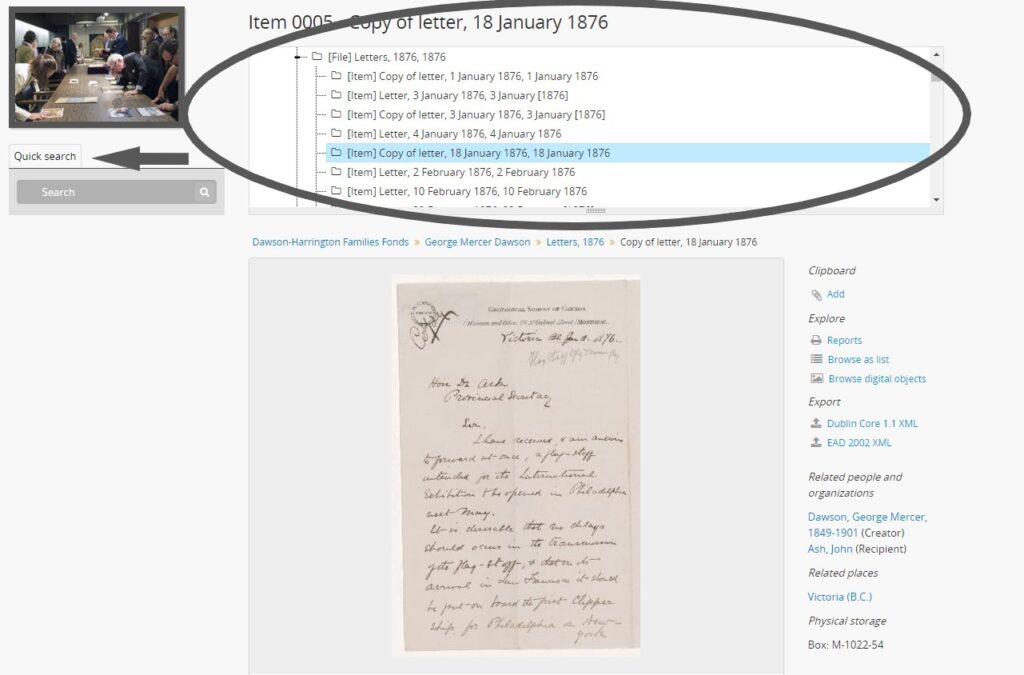 Item 0005 - Copy of letter, 18 January 1876
[File] Letters, 1876, 1876
[Item] Copy of letter, 1 January 1876, 1 January 1876
[Item] Letter, 3 January 1876, 3 January [1876]
[Item] Copy of letter, 3 January 1876, 3 January [1876]
[Item] Letter, 4 January 1876, 4 January 1876
[Item] Copy of letter, 18 January 1876, 18 January 1876
[Item] Letter, 2 February 1876, 2 February 1876
[Item] Letter, 10 February 1876, 10 February 1876
Quick search
Search
Dawson-Harrington Families Fonds » George Mercer Dawson » Letters, 1876 » Copy of letter, 18 January 1876
Copy
Geological Survey of Canada
Museum and Office, St Gabriel Street MONTREAL.
Victoria BC Jan 18. 1876.
Flag Staff
Hon Dr Ash
Provincial Secretary
Sir,
I have received, & am anxious
to forward at once, a flag-staff
intended for the International
Exhibition to be opened in Philadelphia
next May.
It is desirable that no delays
should occur in the transmission
of the flag-staff, & that on its
arrival in San Francisco it should
be put on board the first Clipper
ship for Philadelphia or New-
york
Clipboard
Add
Explore
Reports
Browse as list
Browse digital objects
Export
Dublin Core 1.1 XML
EAD 2002 XML
Related people and
organizations
Dawson, George Mercer,
1849-1901 (Creator)
Ash, John (Recipient)
Related places
Victoria (B.C.)
Physical storage
Box: M-1022-54